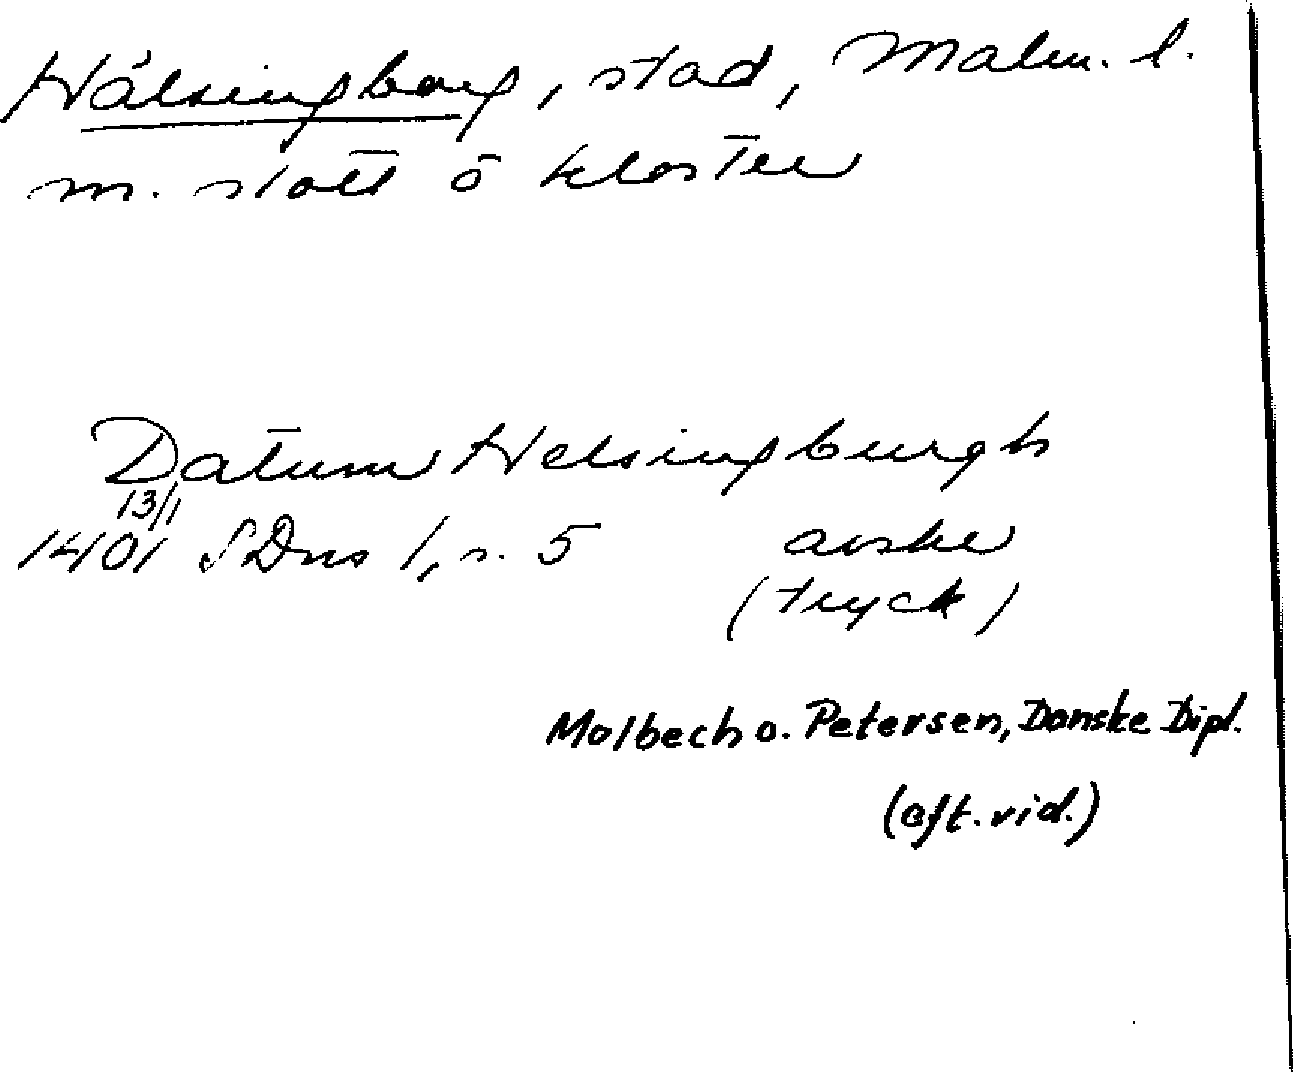 Hälsingborg, stad, Malm. l.
m. slott o kloster
Datum Helsingburgh
13/1
1401 SDns 1, s. 5 avskr
(tryck)
Molbech o. Petersen, Danske Dipl.
(eft. vid.)